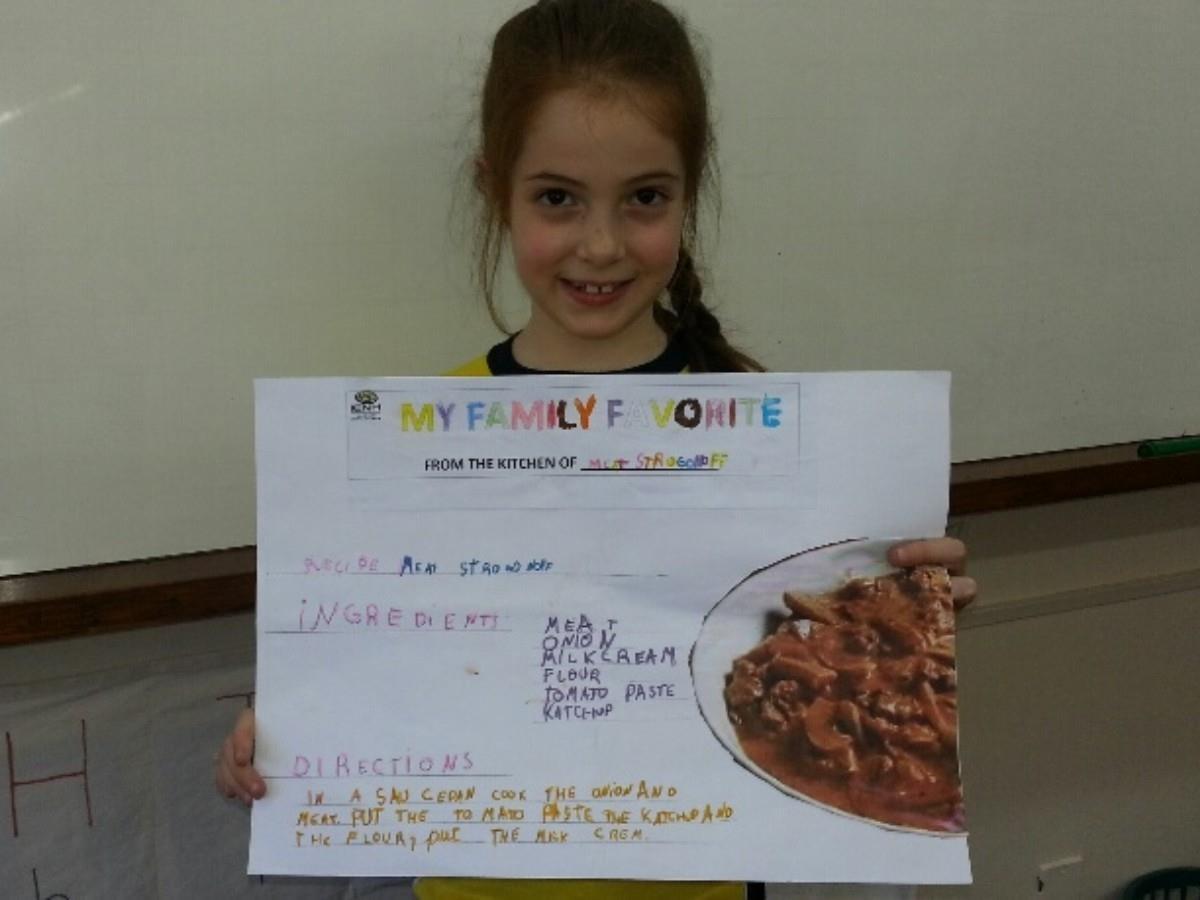 ICNH
MY FAMILY FAVORITE
FROM THE KITCHEN OF MEAT STROGONOFF
RECIPE MEAT STROGONOFF
INGREDIENTS
MEAT
ONION
MILKCREAM
FLOUR
TOMATO PASTE
KATCHUP
DIRECTIONS
IN A SAU CEPAN COOK THE ONION AND
MEAT. PUT THE TO MATO PASTE THE KATCHUP AND
THE FLOUR, PUT THE MILK CREM.
H
h